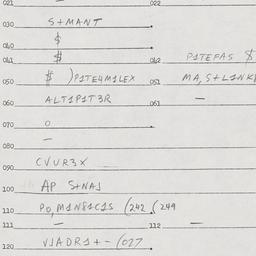 021 022
030 S+MANT
040 $
041 $ 042 P1TEFAS $
050 $ )P1TE4M1LEX 051 MA, S+L1NK
060 ALT1P1T3R 061 —
070 O
080 —
090 CVUR3X
100 AP S+NA1
110 PO, M1N81C1S (242 (249
111 — 112 —
120 V1ADR1+ - (027